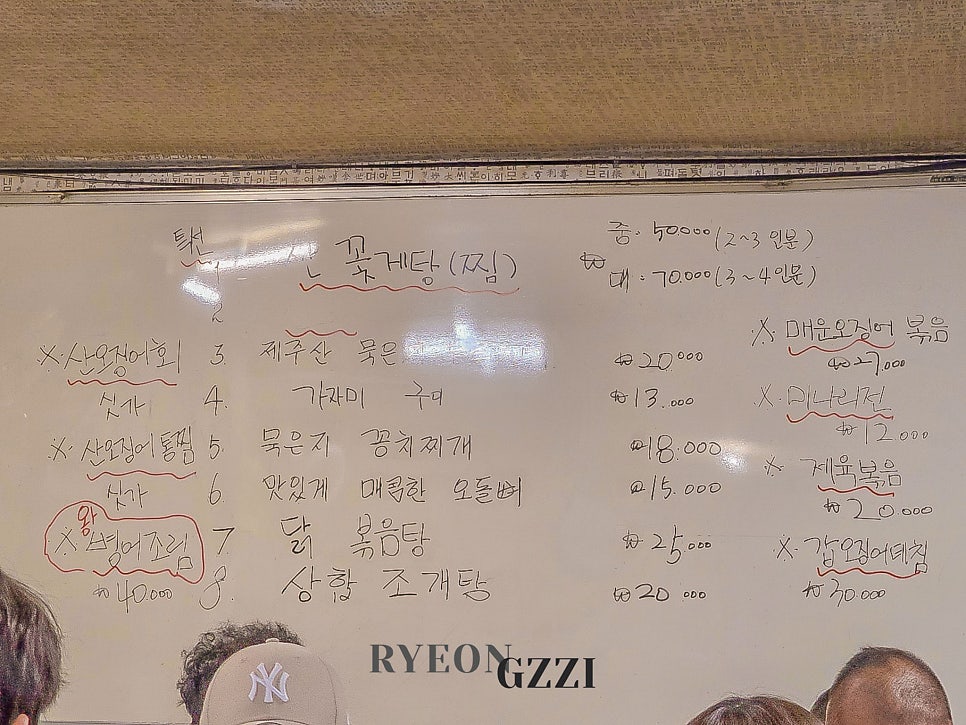 특선
1 산 꽃게탕(찜) ₩ 중: 50000(2~3 인분)
대: 70.000(3~4인분)
2
※ 산오징어회
싯가
※ 산오징어통찜
싯가
※ 왕 병어조림
₩40.000
3. 제주산 묵은 ₩20000
4. 가자미 구이 ₩13.000
5. 묵은지 꽁치찌개 ₩18.000
6. 맛있게 매콤한 오돌뼈 ₩15.000
7. 닭 볶음탕 ₩25.000
8. 상합 조개탕 ₩20.000
※ 매운오징어 볶음
₩27.000
※ 미나리전
₩12000
※ 제육볶음
₩20.000
※ 갑오징어데침
₩30.000
NY
RYEON
GZZI